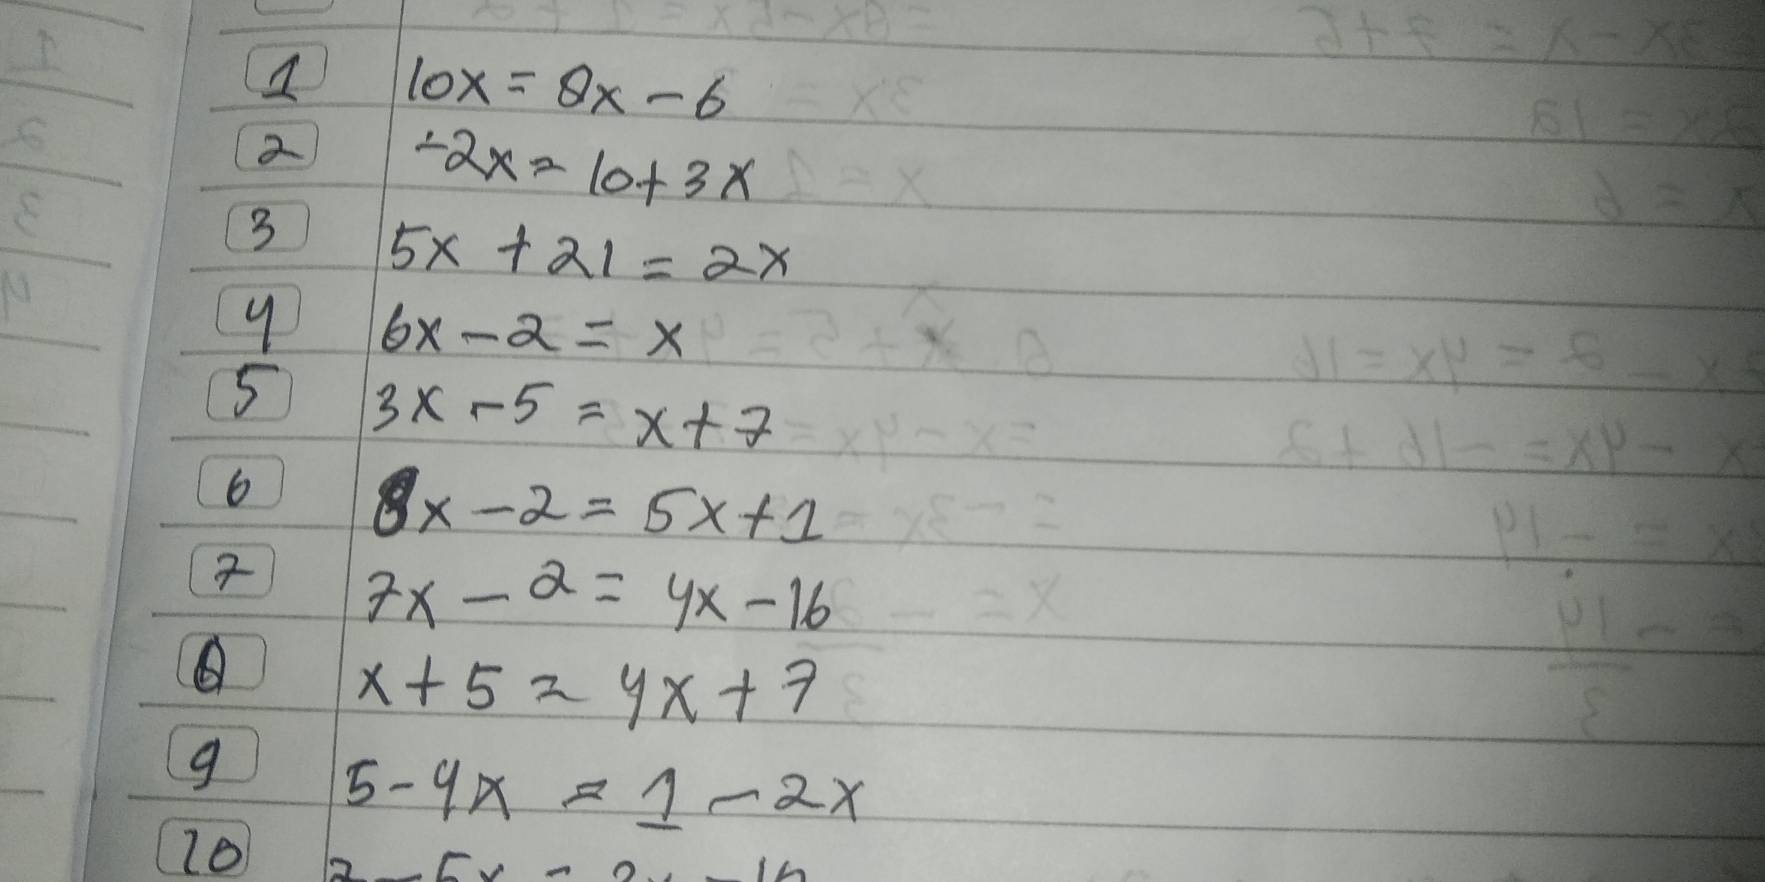 1 10x = 8x - 6
2 -2x = 10 + 3x
3 5x + 21 = 2x
4 6x - 2 = x
5 3x - 5 = x + 7
6 8x - 2 = 5x + 1
7 7x - 2 = 4x - 16
8 x + 5 = 4x + 7
9 5 - 4x = 1 - 2x
10